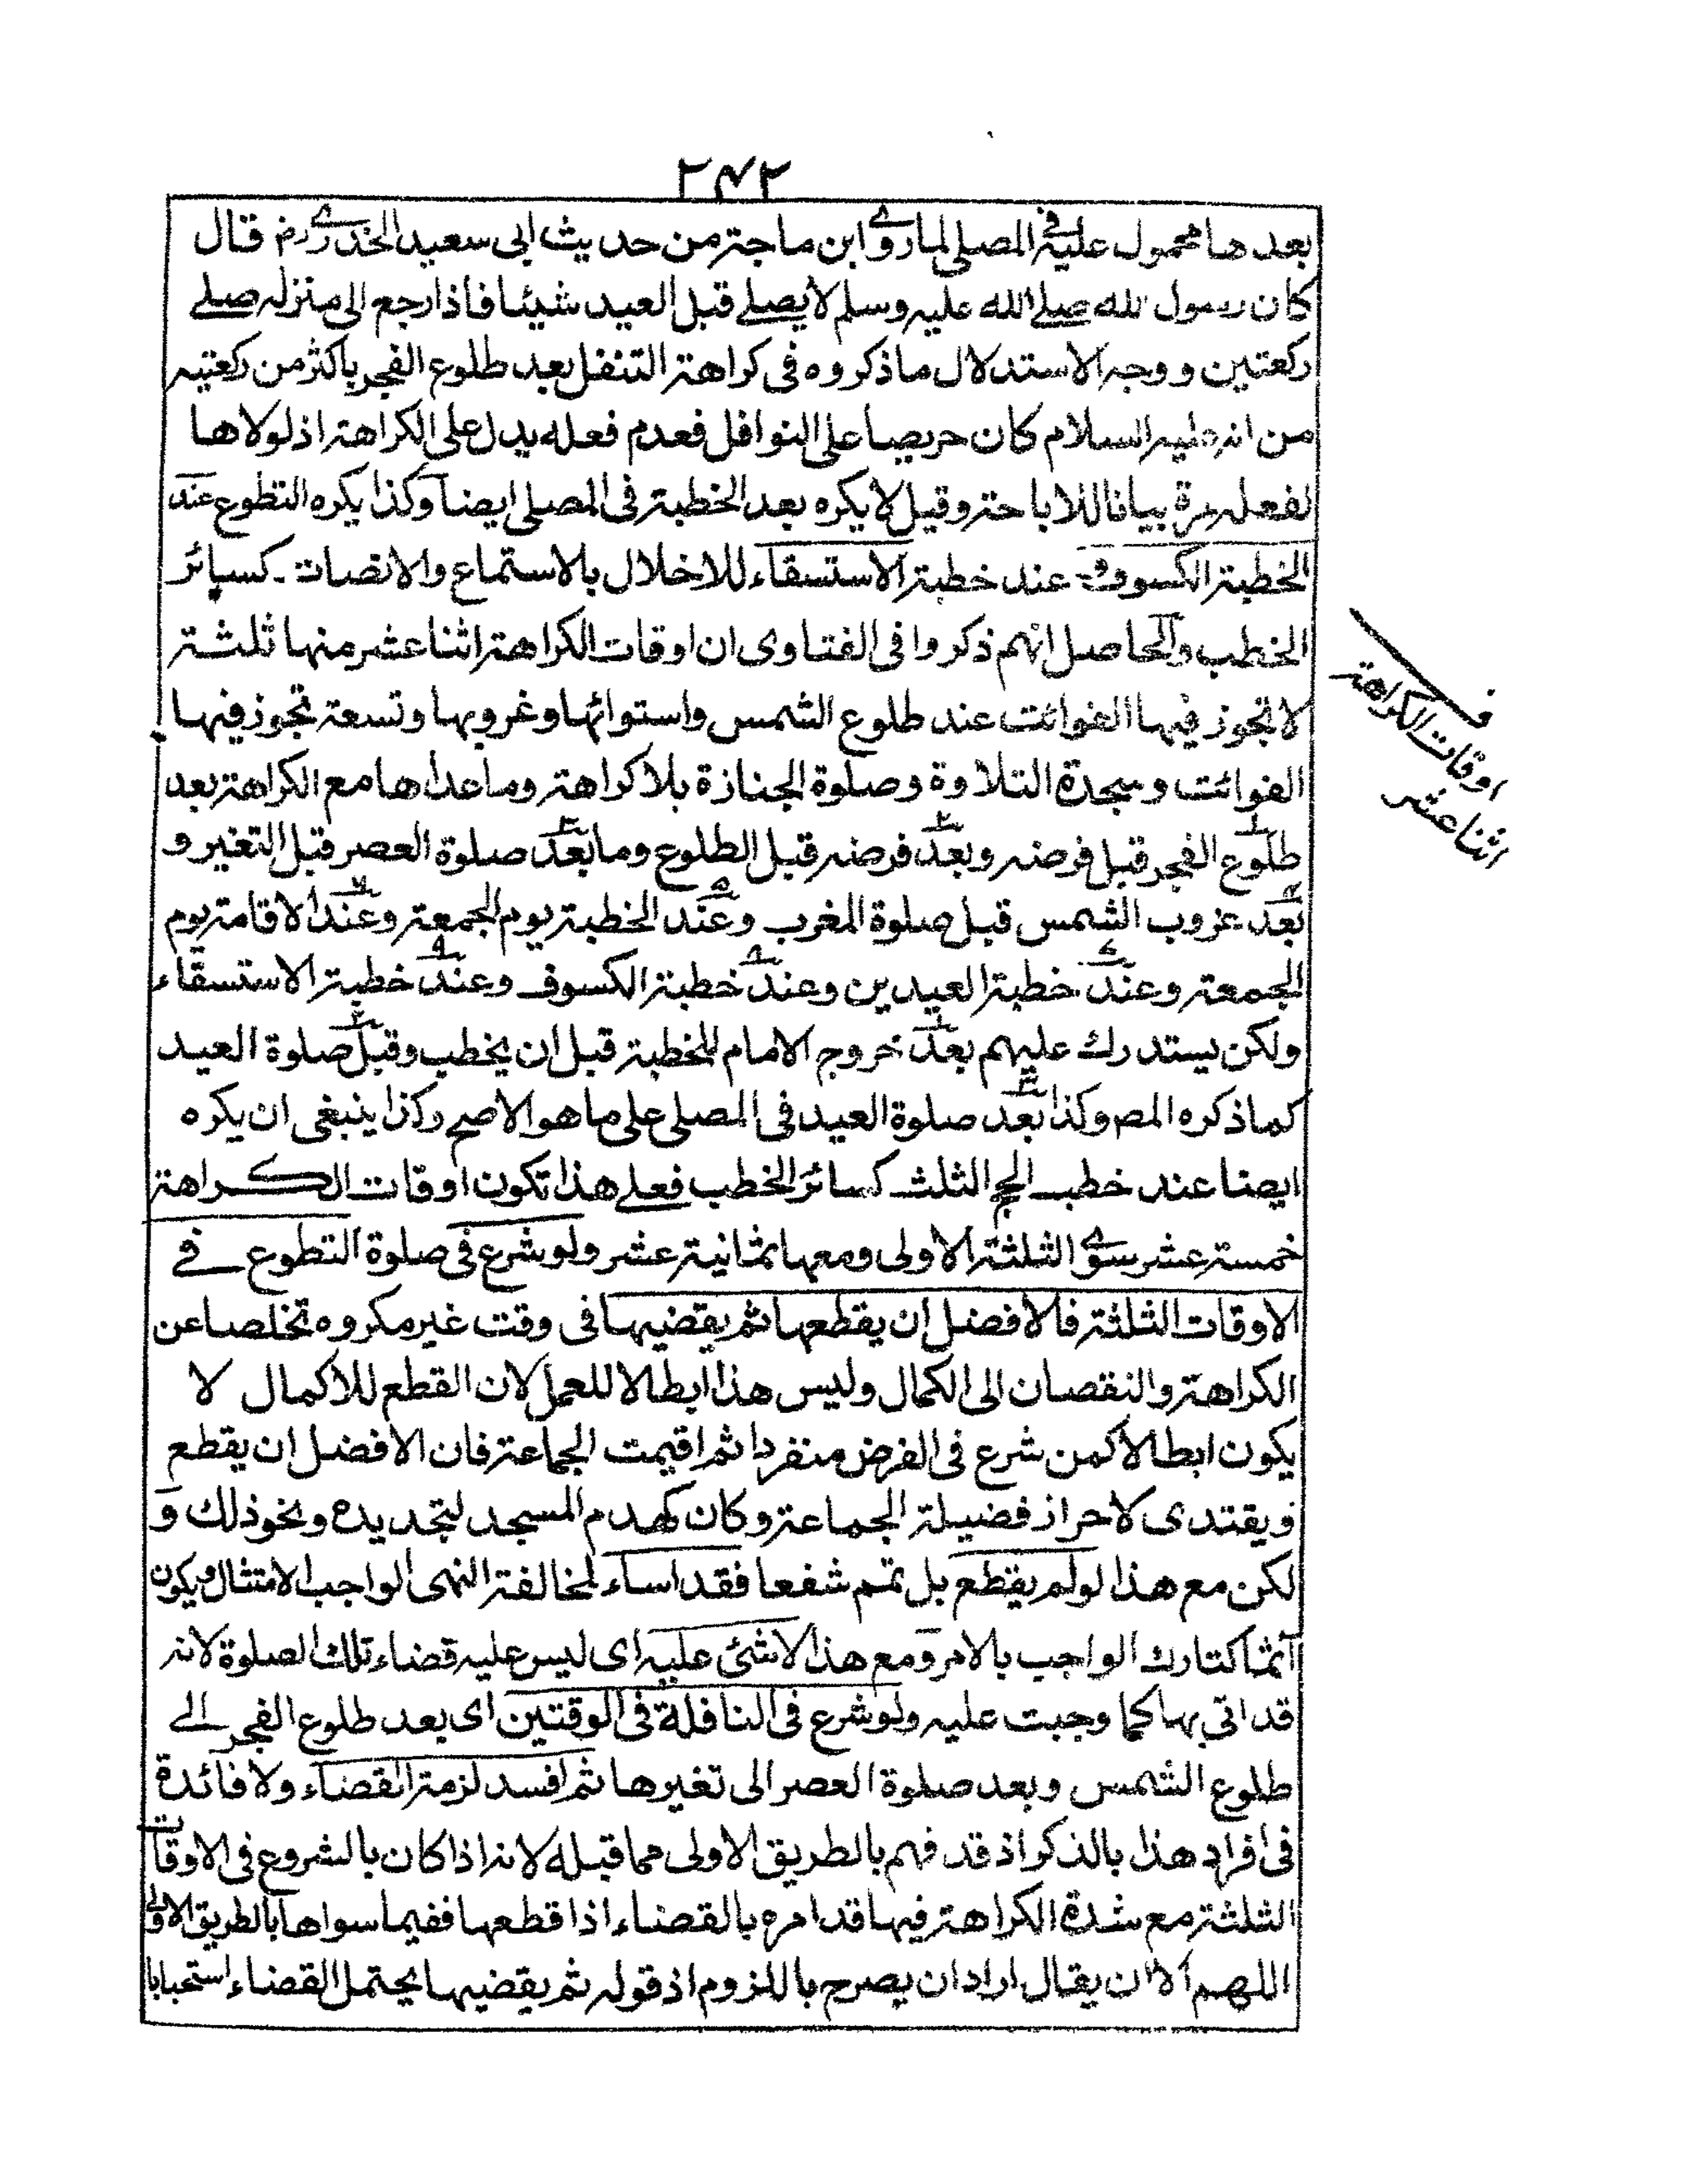 ٢٤٢
بعدها محمول عليه في المصلى لما روى ابن ماجة من حديث ابى سعيد الخدرى رض قال
كان رسول الله صلى الله عليه وسلم لا يصلى قبل العيد شيئا فاذا رجع الى منزله صلى
ركعتين ووجه الاستدلال ما ذكروه فى كراهة التنفل بعد طلوع الفجر باكثر من ركعتيه
من انه عليه السلام كان حريصا على النوافل فعدم فعله يدل على الكراهة اذ لولاها
لفعله مرة بيانا للاباحة وقيل لا يكره بعد الخطبة فى المصلى ايضا وكذا يكره التطوع عند
الخطبة الكسوف وعند خطبة الاستسقاء للاخلال بالاستماع والانصات كسائر
الخطب والحاصل انهم ذكروا فى الفتاوى ان اوقات الكراهة اثنا عشر منها ثلثة
لا تجوز فيها الفوائت عند طلوع الشمس واستوائها وغروبها وتسعة تجوز فيها
الفوائت وسجدة التلاوة وصلوة الجنازة بلا كراهة وما عداها مع الكراهة بعد
طلوع الفجر قبل فرضه وبعد فرضه قبل الطلوع وما بعد صلوة العصر قبل التغير و
بعد غروب الشمس قبل صلوة المغرب وعند الخطبة يوم الجمعة وعند الاقامة يوم
الجمعة وعند خطبة العيدين وعند خطبة الكسوف وعند خطبة الاستسقاء
ولكن يستدرك عليهم بعد خروج الامام للخطبة قبل ان يخطب وقبل صلوة العيد
كما ذكره المص وكذا بعد صلوة العيد فى المصلى على ما هو الاصح وكذا ينبغى ان يكره
ايضا عند خطب الحج الثلث كسائر الخطب فعلى هذا تكون اوقات الكراهة
خمسة عشر سوى الثلثة الاولى ومعها ثمانية عشر ولو شرع فى صلوة التطوع في
الاوقات الثلثة فالافضل ان يقطعها ثم يقضيها فى وقت غير مكروه تخلصا عن
الكراهة والنقصان الى الكمال وليس هذا ابطالا للعمل لان القطع للاكمال لا
يكون ابطالا كمن شرع فى الفرض منفردا ثم اقيمت الجماعة فان الافضل ان يقطع
ويقتدى لاحراز فضيلة الجماعة وكان كهدم المسجد لتجديده ونحو ذلك و
لكن مع هذا لو لم يقطع بل تمم شفعا فقد اساء لمخالفة النهى الواجب الامتثال ويكون
آثما كتارك الواجب بالامر ومع هذا لا شئ عليه اى ليس عليه قضاء تلك الصلوة لانه
قد اتى بها كما وجبت عليه ولو شرع فى النافلة فى الوقتين اى بعد طلوع الفجر الى
طلوع الشمس وبعد صلوة العصر الى تغيرها ثم افسد لزمة القضاء ولا فائدة
فى افراد هذا بالذكر اذ قد فهم بالطريق الاولى مما قبله لانه اذا كان بالشروع فى الاوقات
الثلثة مع شدة الكراهة فيها قد امره بالقضاء اذا قطعها ففيما سواها بالطريق الاولى
اللهم الا ان يقال اراد ان يصرح باللزوم اذ قوله ثم يقضيها يحتمل القضاء استحبابا
ف
اوقات الكراهة
اثنا عشر